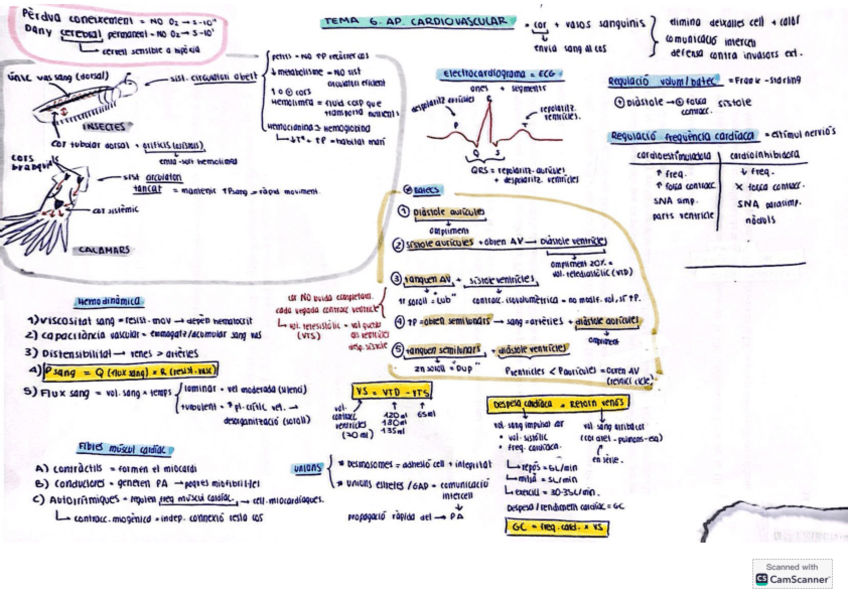 Pèrdua coneixement = NO O₂ → 5-10"
Dany cerebral permanent = NO O₂ → 5-10'
cervell sensible a hipòxia
TEMA 6. AP. CARDIOVASCULAR
= cor + vasos sanguinis
envia sang al cos
elimina deixalles cel + calor
comunicació intercel
defensa contra invasors ext.
únic vas sang (dorsal)
sist. circulatori obert
INSECTES
cor tubular dorsal + orificis (ostioles)
petits = NO TP
↓ metabolisme = NO sist
circulatori eficient
1 o ⊕ cors
hemolimfa = fluid corp que
transporta nutrients
hemocianina ≥ hemoglobina
↓Tª + TP = habitat marí
cors
branquials
sist circulatori
tancat = mantenir ↑P sang → ràpid moviment.
cor sistèmic
CALAMARS
Electrocardiograma = ECG
ones + segments
despolaritz. aurícules
repolaritz.
ventricles.
P
R
T
Q
S
QRS = repolaritz. aurícules
+ despolaritz. ventricles
Regulació volum/batec = Frank-Starling
⊕ diàstole → ⊕ força sístole
contracc.
Regulació freqüència cardíaca = estímul nerviós
cardioestimuladora
cardioinhibidora
↑ freq.
↓ freq.
↑ força contracc.
× força contracc.
SNA simp.
SNA parasimp.
parts ventricle
nòduls
BATECS
① Diàstole aurícules
ompliment
② Sístole aurícules + obren AV → Diàstole ventricles
ompliment 20% =
vol. telediastòlic (VTD)
③ Tanquen AV + sístole ventricles
1r soroll = "Lub"
contracc. isovolumètrica = no modif. vol, sí TP.
④ TP = obren semilunars → sang → artèries + diàstole aurícules
ompliment
⑤ Tanquen semilunars + diàstole ventricles
2n soroll = "Dup"
Pventricles < Paurícules = Obren AV
(reinici cicle)
cor NO buida completam.
cada vegada contracc ventricle
vol. telesistòlic = vol queda
(VTS)
als ventricles
desp. sístole
Hemodinàmica
1) Viscositat sang = resist. mov → depèn hematocrit
2) Capacitància vascular = emmagatz/acumular sang vas
3) Distensibilitat → venes > artèries
4) P sang = Q (flux sang) × R (resist. vasc)
5) Flux sang = vol. sang × temps
laminar = vel moderada (silenci)
turbulent = ↑ pt. crític vel. →
desorganització (soroll)
VS = VTD - VTS
vol.
contracc
ventricles
(70 ml)
120 ml
180 ml
135 ml
65 ml
Despesa cardíaca = Retorn venós
vol sang impulsat cor
• vol. sistòlic
• freq. cardíaca.
vol sang arriba cor
en sèrie.
repòs = 6L/min
mitjà = 5L/min
exercici = 30-35L/min.
Despesa/rendiment cardíac = GC
GC = freq. card. × VS
Fibres múscul cardíac
A) Contràctils = formen el miocardi
B) Conductores = generen PA → poques miofibril·les
C) Autorítmiques = regulen freq múscul cardíac → cel. miocardíaques.
contracc. miogènica = indep. connexió resta cos
UNIONS
* Desmosomes = adhesió cel + integritat
* Unions estretes / GAP = comunicació
intercel
propagació ràpida del → PA
Scanned with
CS CamScanner